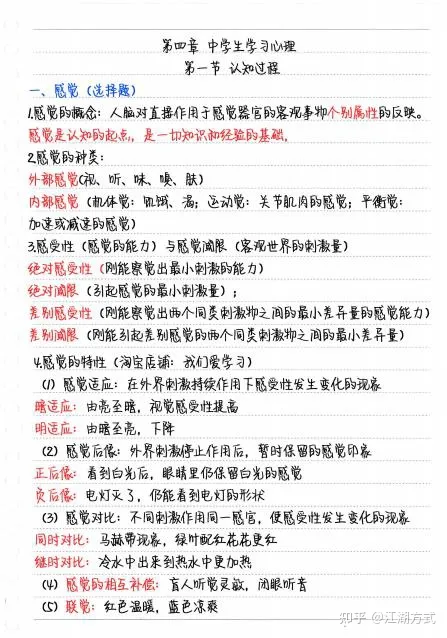 第四章 中学生学习心理
第一节 认知过程
一、感觉（选择题）
1.感觉的概念：人脑对直接作用于感觉器官的客观事物个别属性的反映。
感觉是认知的起点，是一切知识和经验的基础。
2.感觉的种类：
外部感觉(视、听、味、嗅、肤)
内部感觉（机体觉：饥饿、渴；运动觉：关节肌肉的感觉；平衡觉：
加速或减速的感觉）
3.感受性（感觉的能力）与感觉阈限（客观世界的刺激量）
绝对感受性（刚能察觉出最小刺激的能力）
绝对阈限（引起感觉的最小刺激量）；
差别感受性（刚能察觉出两个同类刺激物之间的最小差异量的感觉能力）
差别阈限（刚能引起差别感觉的两个同类刺激物之间的最小差异量）
4.感觉的特性（淘宝店铺：我们爱学习）
（1）感觉适应：在外界刺激持续作用下感受性发生变化的现象
暗适应：由亮至暗，视觉感受性提高
明适应：由暗至亮，下降
（2）感觉后像：外界刺激停止作用后，暂时保留的感觉印象
正后像：看到白光后，眼睛里仍保留白光的感觉
负后像：电灯灭了，仍能看到电灯的形状
（3）感觉对比：不同刺激作用同一感官，使感受性发生变化的现象
同时对比：马赫带现象，绿叶配红花花更红
继时对比：冷水中出来到热水中更加热
（4）感觉的相互补偿：盲人听觉灵敏，闭眼听音
（5）联觉：红色温暖，蓝色凉爽
知乎 @江湖方式